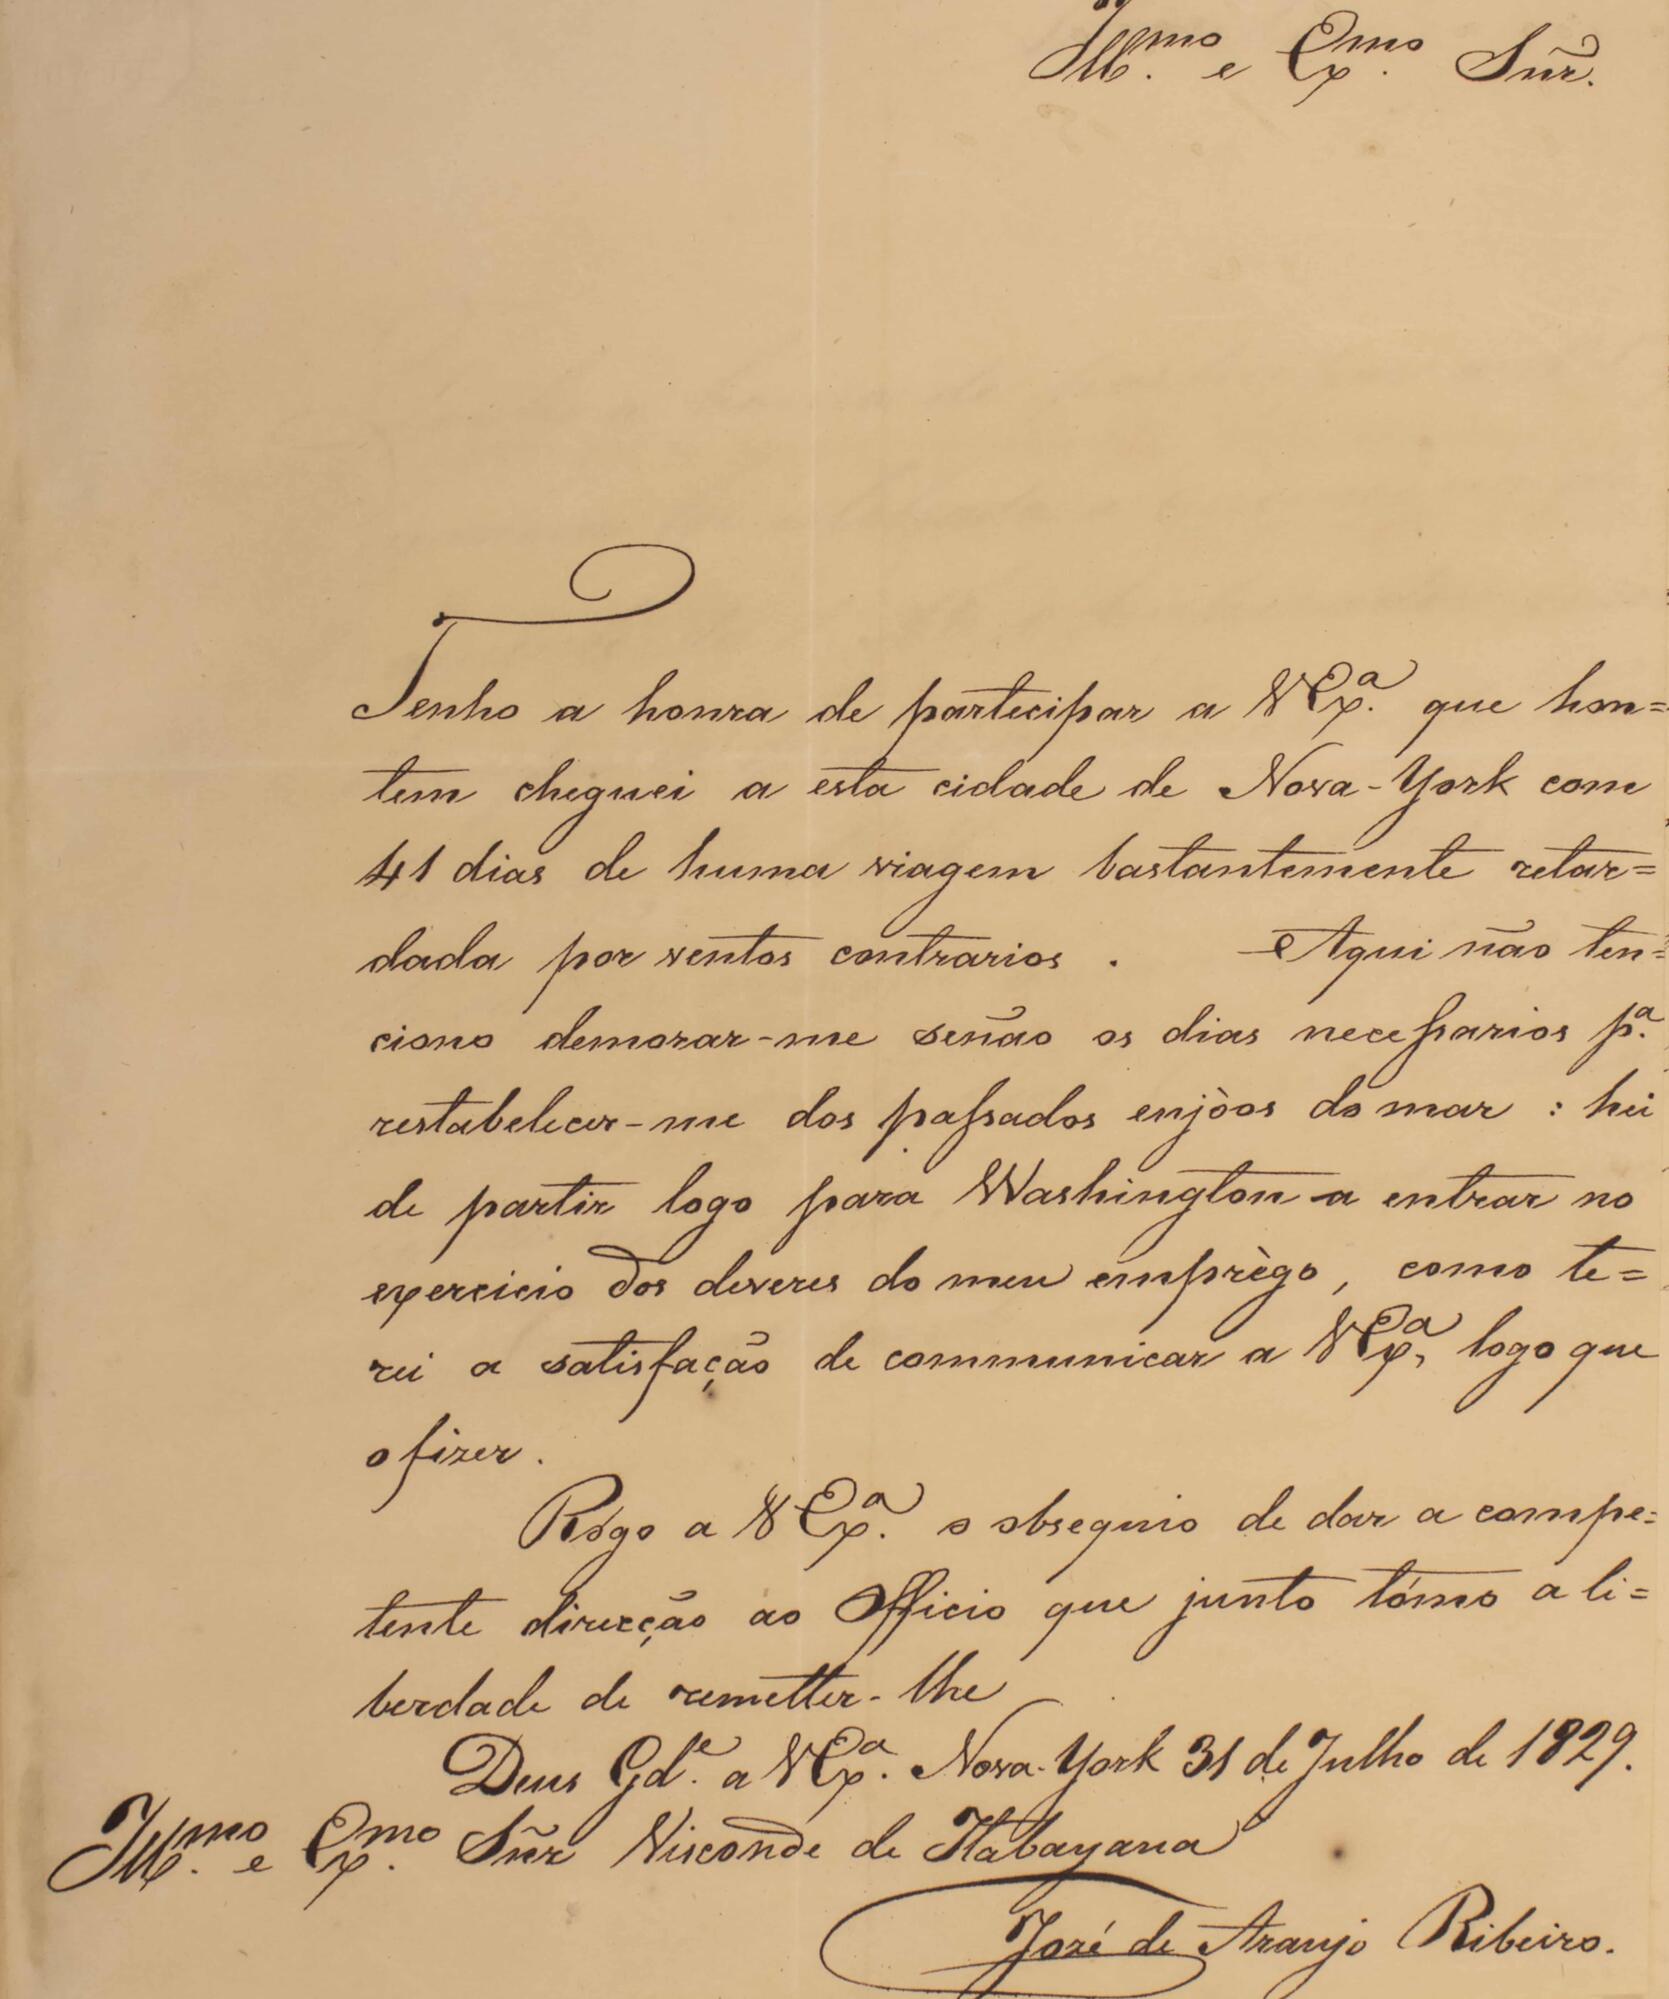 Ill.mo e Ex.mo Sñr.
Tenho a honra de partecipar a V Ex.a que hon=
tem cheguei a esta cidade de Nova-York com
41 dias de huma viagem bastantemente retar=
dada por ventos contrarios . Aqui não ten=
ciono demorar-me senão os dias necessarios p.a
restabelecer-me dos passados enjòos do mar : hei
de partir logo para Washington a entrar no
exercicio dos deveres do meu emprègo , como te=
rei a satisfação de communicar a V Ex.a, logo que
o fizer .
Rógo a V Ex.a o obsequio de dar a compe=
tente direcção ao Officio que junto tómo a li=
berdade de remetter-lhe
Deus Gd.e a V Ex.a. Nova-York 31 de Julho de 1829.
Ill.mo e Ex.mo Sñr Visconde de Itabayana
José de Araujo Ribeiro.